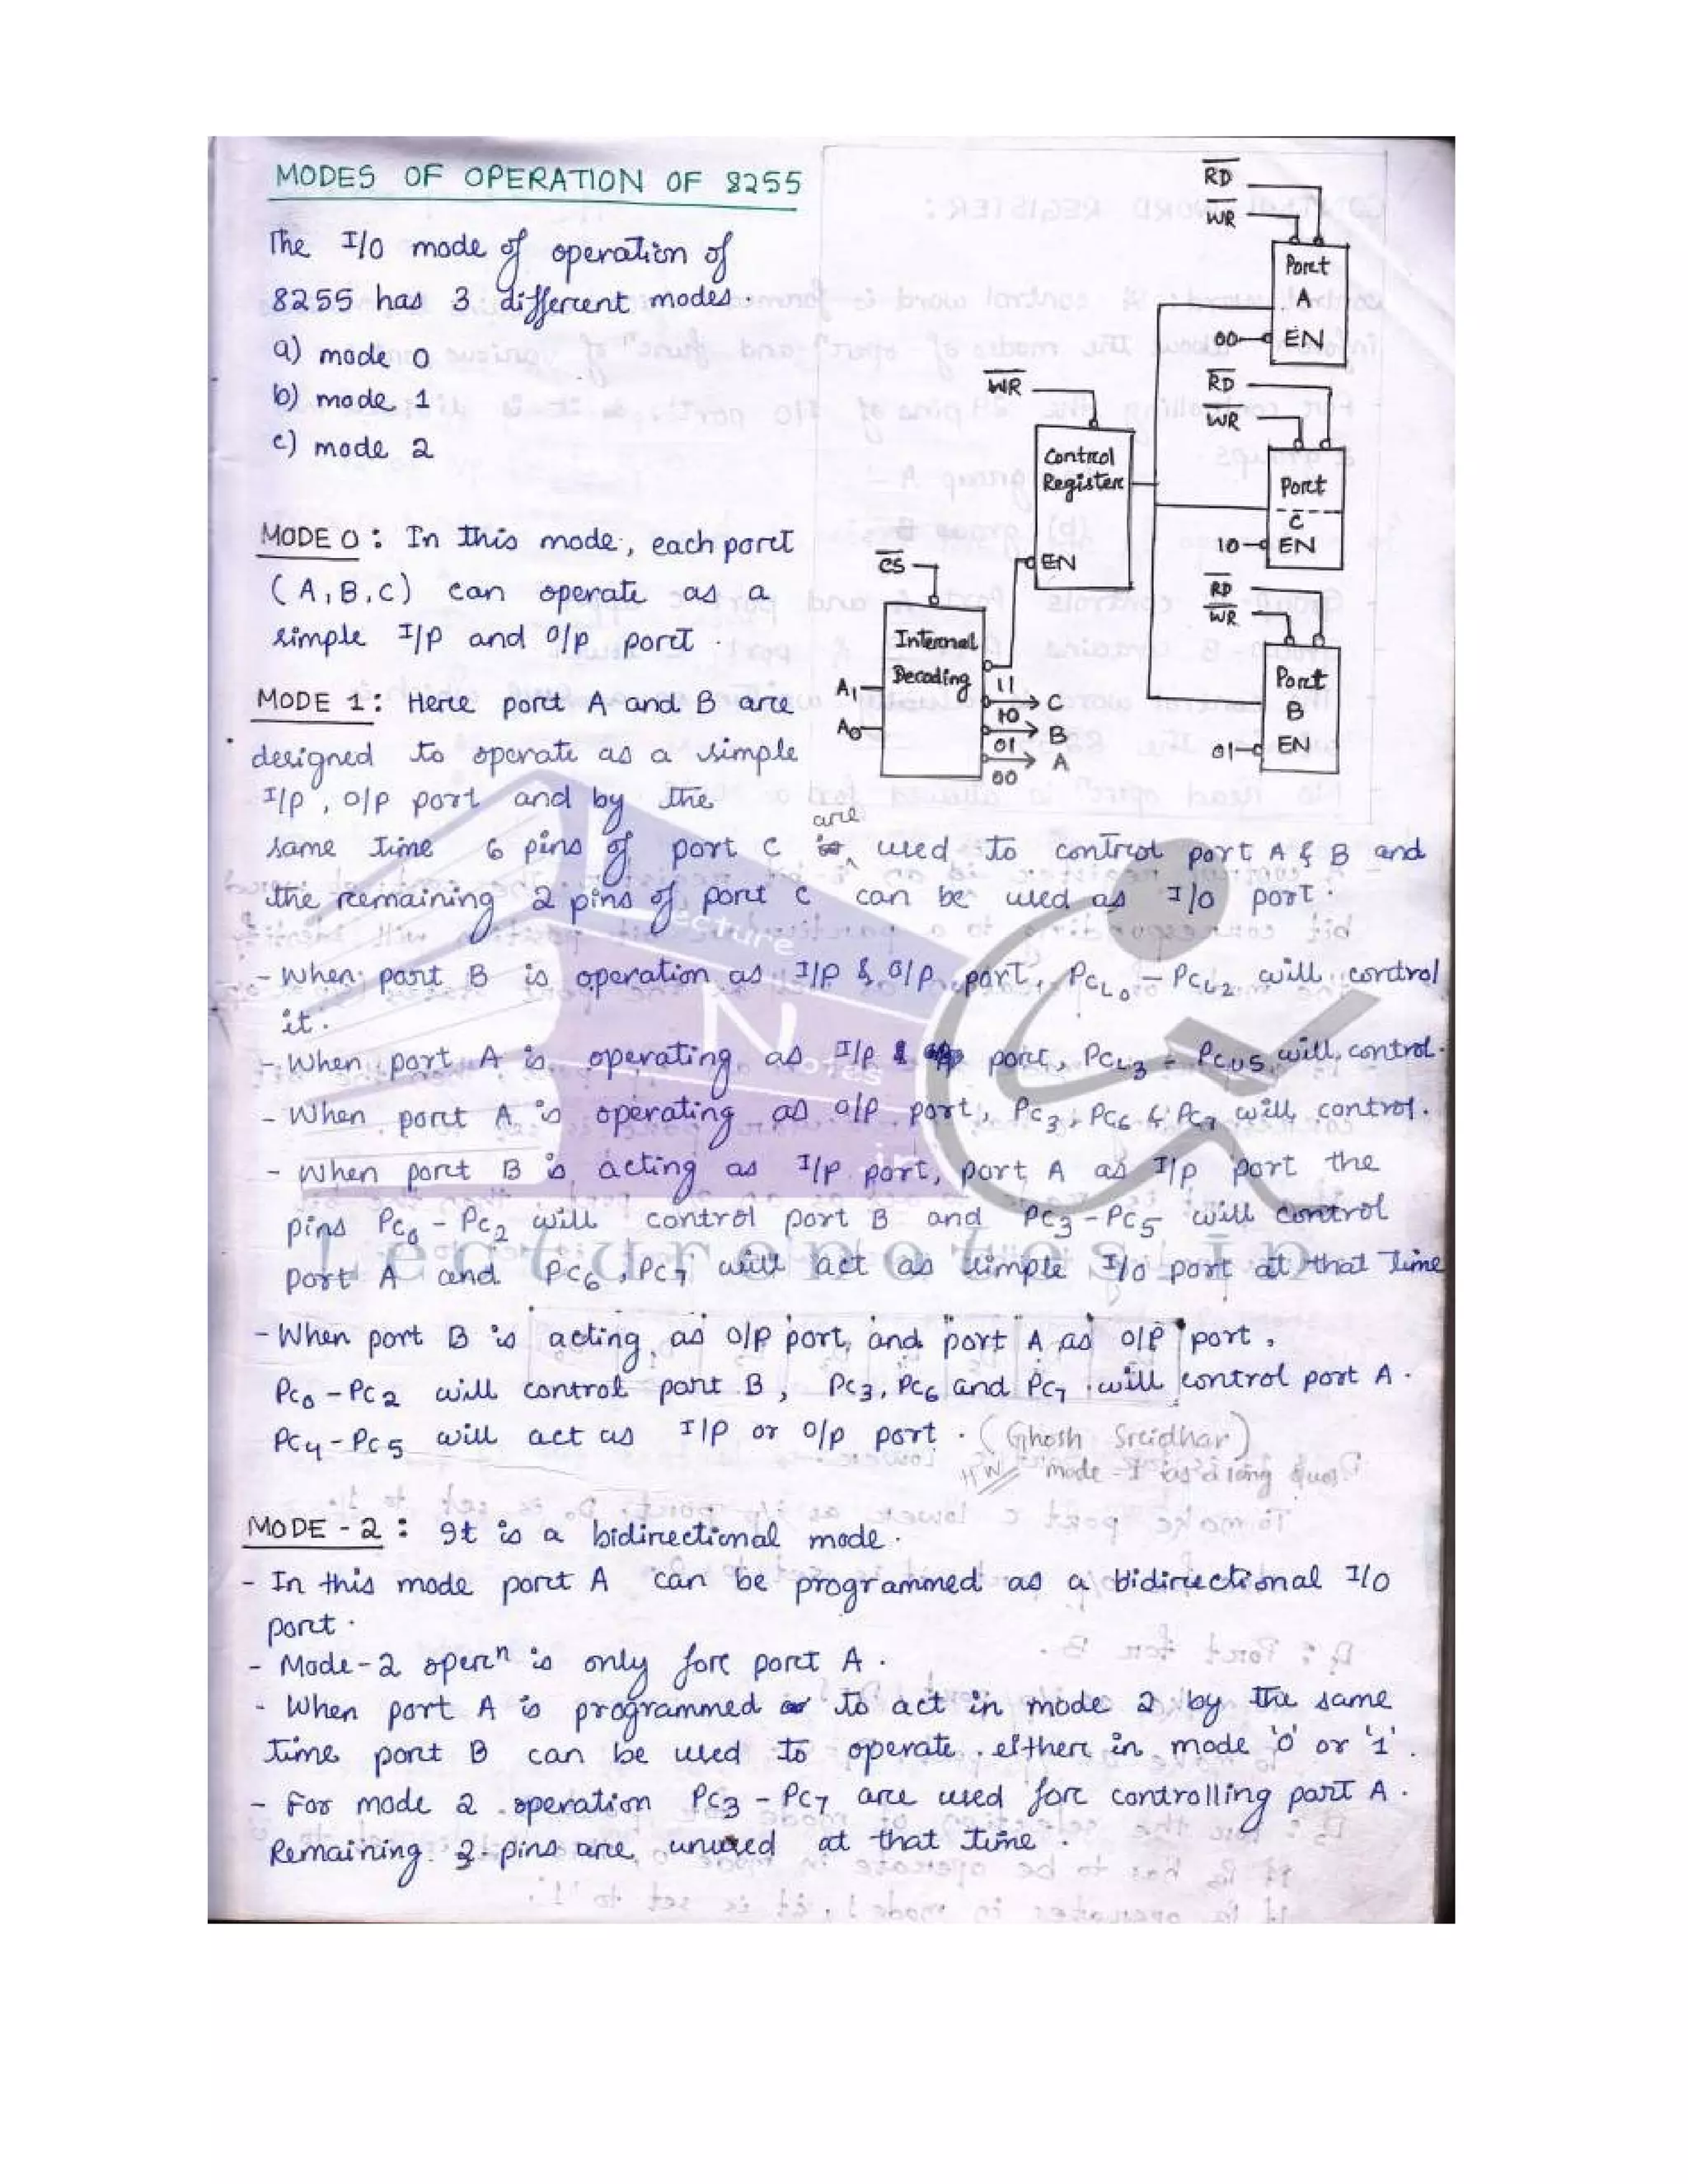 MODES OF OPERATION OF 8255
The I/O mode of operation of
8255 has 3 different modes.
a) mode 0
b) mode 1
c) mode 2
MODE 0 : In this mode, each port
(A,B,C) can operate as a
simple I/P and O/P port.
MODE 1 : Here port A and B are
designed to operate as a simple
I/P, O/P port and by the
are
same time 6 pins of port C used to control port A & B and
the remaining 2 pins of port C can be used as I/O port.
- When port B is operation as I/P & O/P port, PCL0 - PCL2 will control
it.
- When port A is operating as I/P port, PCL3 - PCU5 will control.
- When port A is operating as O/P port, PC3, PC6 & PC7 will control.
- When port B is acting as I/P port, port A as I/P port the
pins PC0 - PC2 will control port B and PC3 - PC5 will control
port A and PC6, PC7 will act as simple I/O port at that time
- When port B is acting as O/P port, and port A as O/P port,
PC0 - PC2 will control port B, PC3, PC6 and PC7 will control port A.
PC4 - PC5 will act as I/P or O/P port. (Ghosh Sridhar)
HW mode - 1 as a long ques.
MODE - 2 : It is a bidirectional mode.
- In this mode port A can be programmed as a bidirectional I/O
port.
- Mode-2 opern is only for port A.
- When port A is programmed to act in mode 2 by the same
time port B can be used to operate either in mode '0' or '1'.
- For mode 2 operation PC3 - PC7 are used for controlling port A.
Remaining 3 pins are unused at that time.
RD
WR
Port
A
00
EN
WR
Control
Register
EN
RD
WR
Port
C
10
EN
CS
Internal
Decoding
A1
A0
11
10
C
01
B
00
A
RD
WR
Port
B
01
EN
Lecture
Notes
.in
Lecturenotes.in